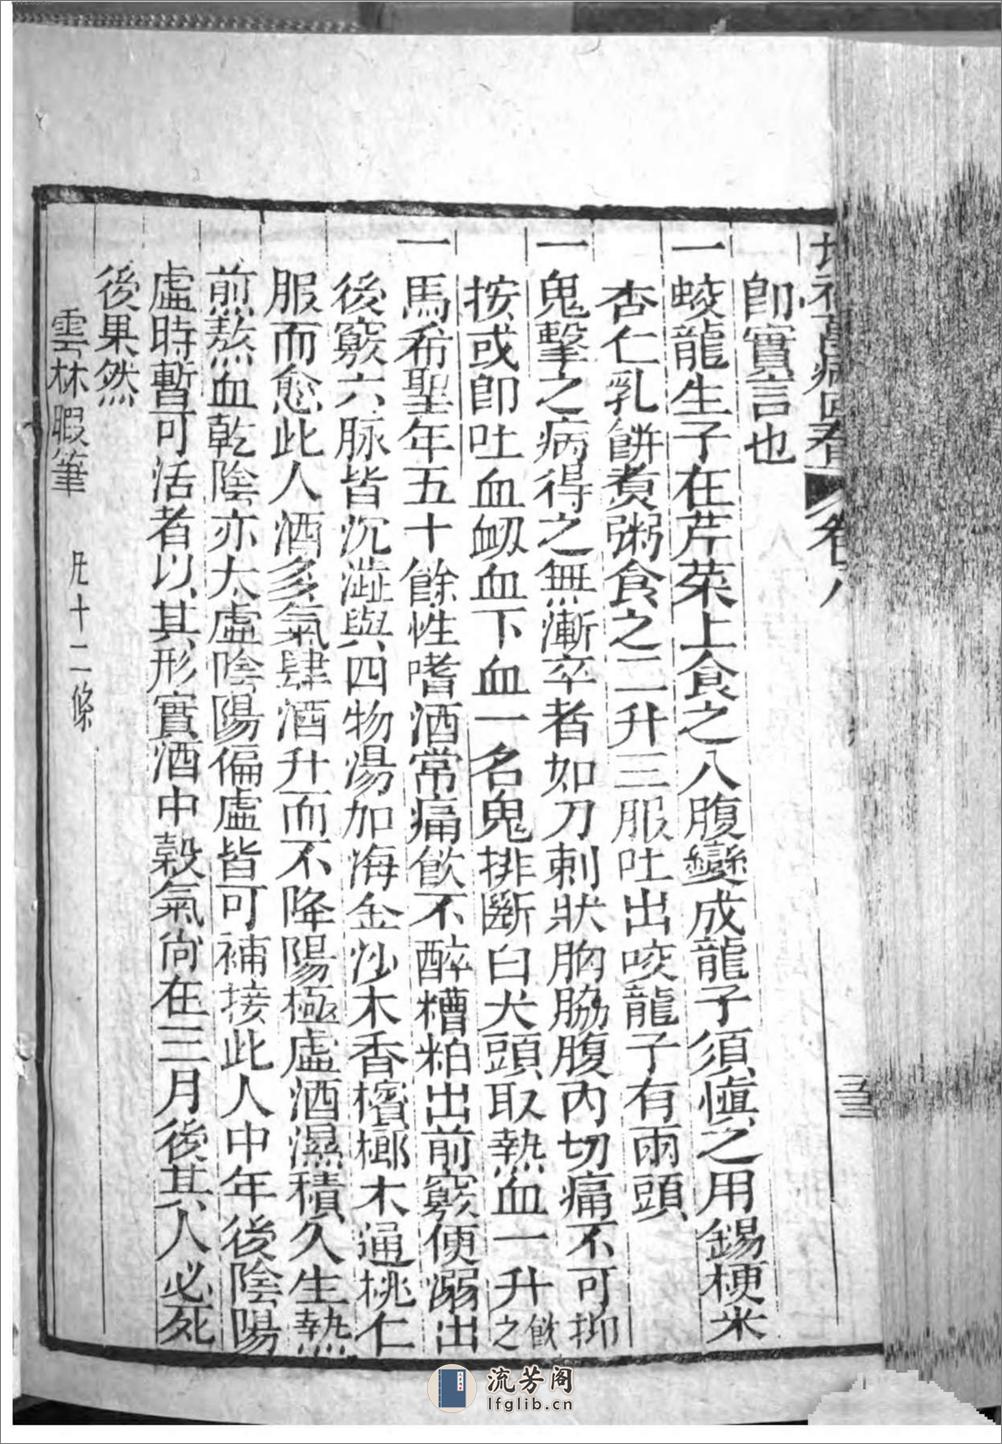 萬病回春
卷八
即實言也
一蛟龍生子在芹菜上食之入腹變成龍子須慎之用錫粳米
杏仁乳餅煑粥食之二升三服吐出咬龍子有兩頭
一鬼擊之病得之無漸卒者如刀刺狀胸脇腹內切痛不可抑
按或即吐血衂血下血一名鬼排斷白犬頭取熱血一升飲之
一馬希聖年五十餘性嗜酒常痛飲不醉糟粕出前竅便溺出
後竅六脉皆沉澁與四物湯加海金沙木香檳榔木通桃仁
服而愈此人酒多氣肆酒升而不降陽極虛酒濕積久生熱
煎熬血乾陰亦大虛陰陽偏虛皆可補接此人中年後陰陽
虛時暫可活者以其形實酒中穀氣尚在三月後其人必死
後果然
雲林暇筆 凡十二條
流芳阁
lfglib.cn